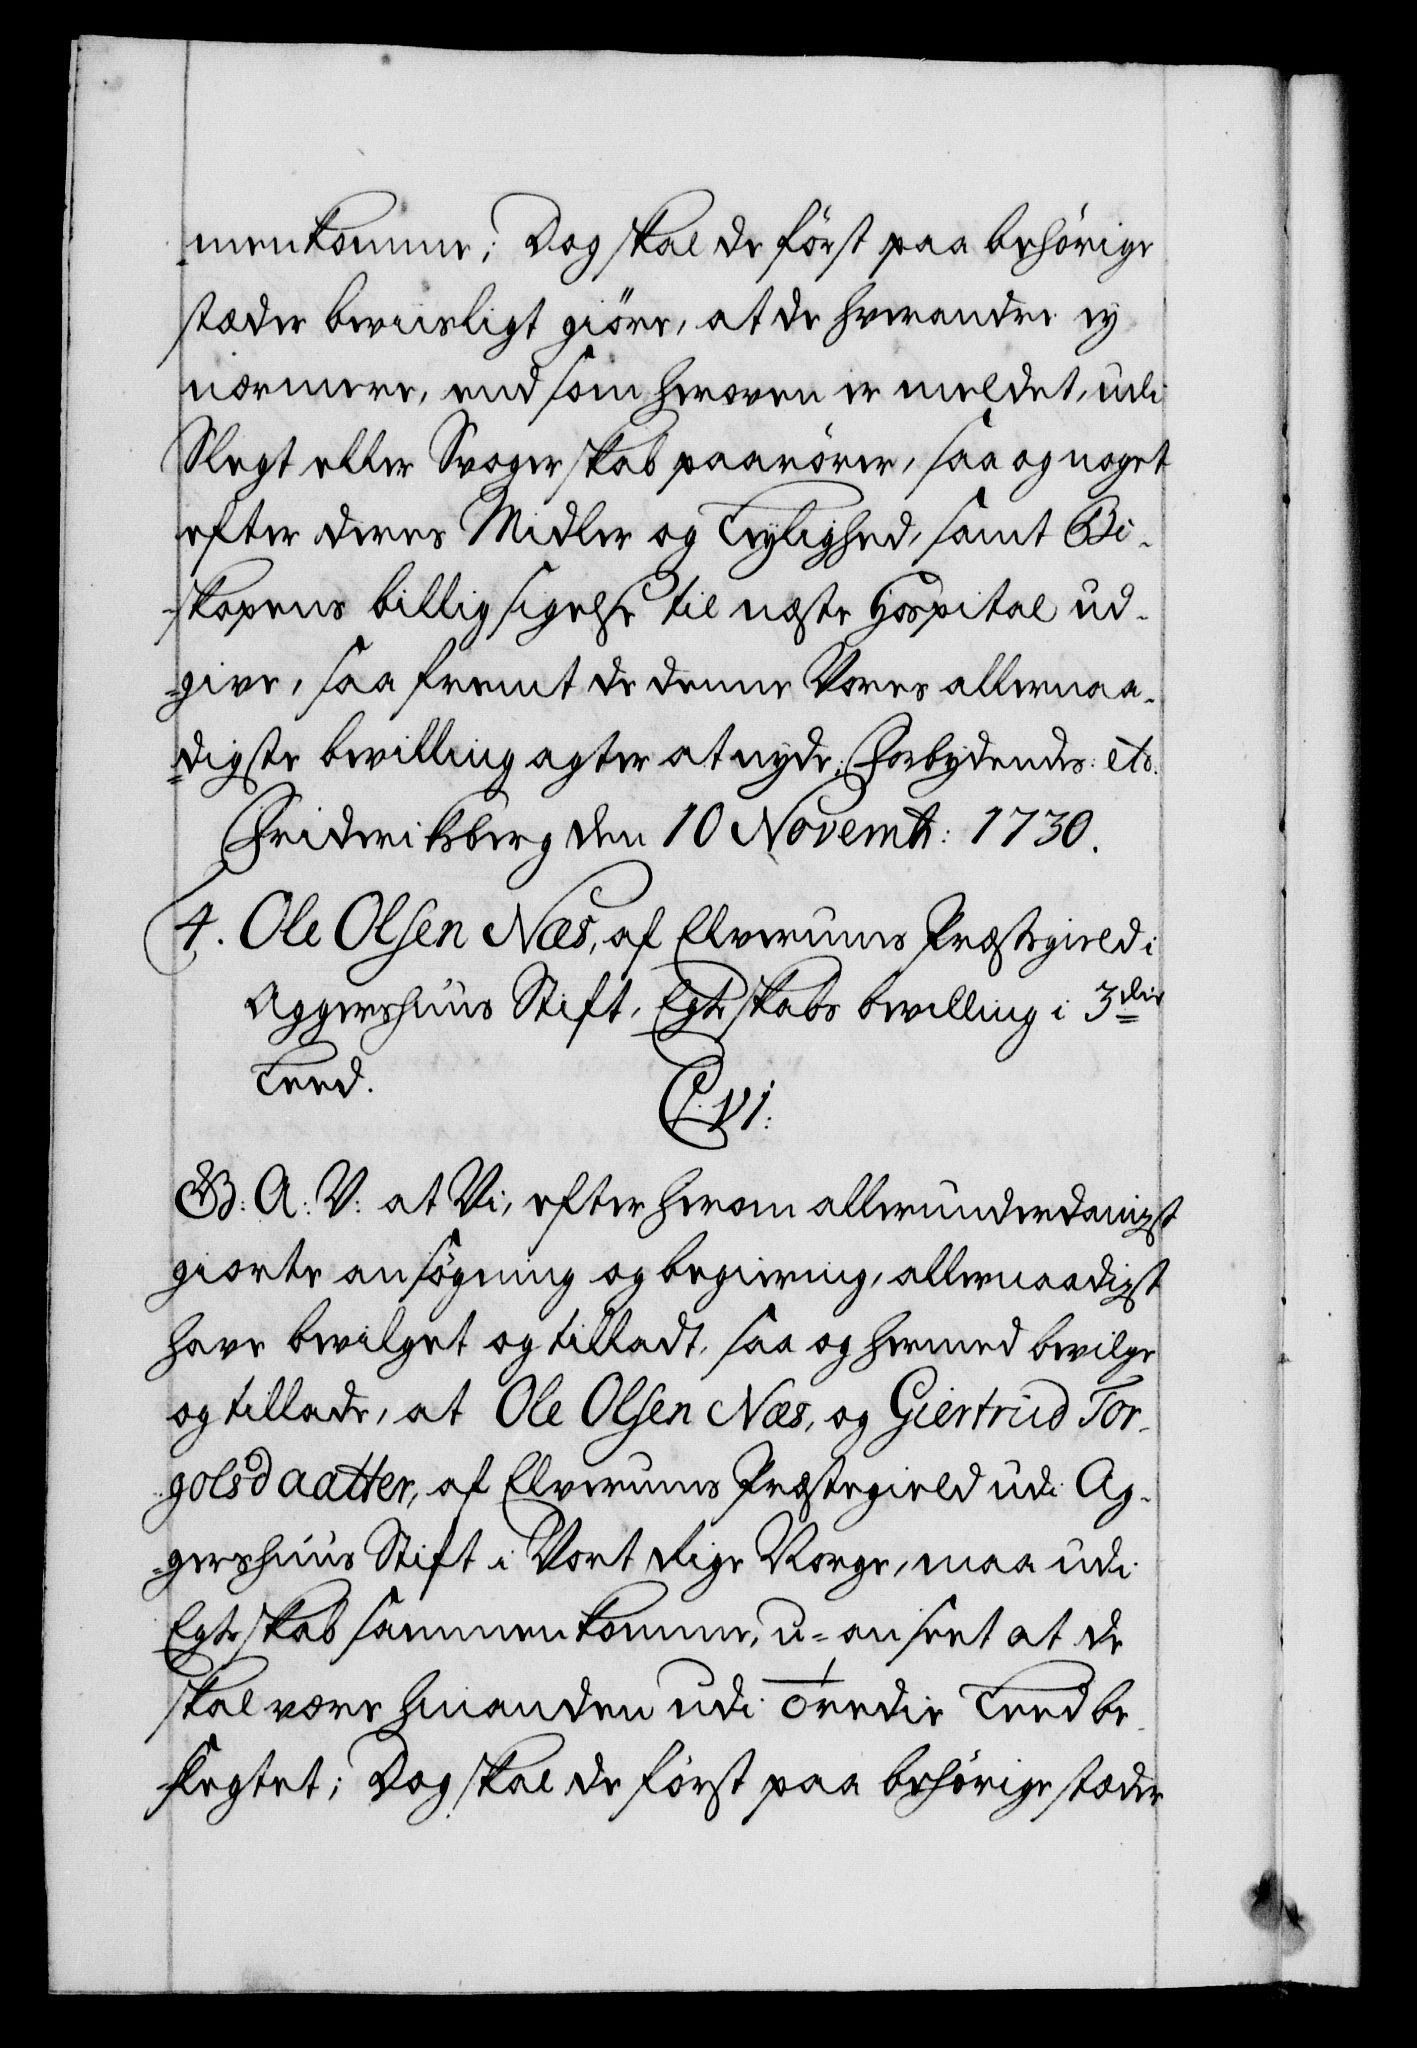 menkomme; Dog skal de först paa behörige
stæder beviisligt giöre, at de hverandre ey
nærmere, end som heroven er meldet, udi
Slegt eller Svogerskab paarörer, saa og noget
efter deres Midler og Leylighed, samt Bi-
-skopens billigsigelse til næste Hospital ud-
-give, saa fremt de denne Vores allernaa-
-digste bevilling agter at nyde; Forbydendes: etc.
Friderichsberg den 10 Novembr: 1730.
4. Ole Olsen Næs, af Elverums Præstegield i
Aggershuus Stift, Egteskabs bevilling i 3die
Leed.
C. VI:
G: A: V: at Vi, efter herom allerunderdanigst
giorte ansögning og begiering, allernaadigst
have bevilget og tilladt, saa og hermed bevilge
og tillade, at Ole Olsen Næs, og Giertrud Tor-
golsdaatter, af Elverums Præstegield udi Ag-
-gershuus Stift i Vort Rige Norge, maa udi
Egteskab sammenkomme, u-anseet at de
skal være hinanden udi Tredie Leed be-
-slegtet; Dog skal de först paa behörige stæder